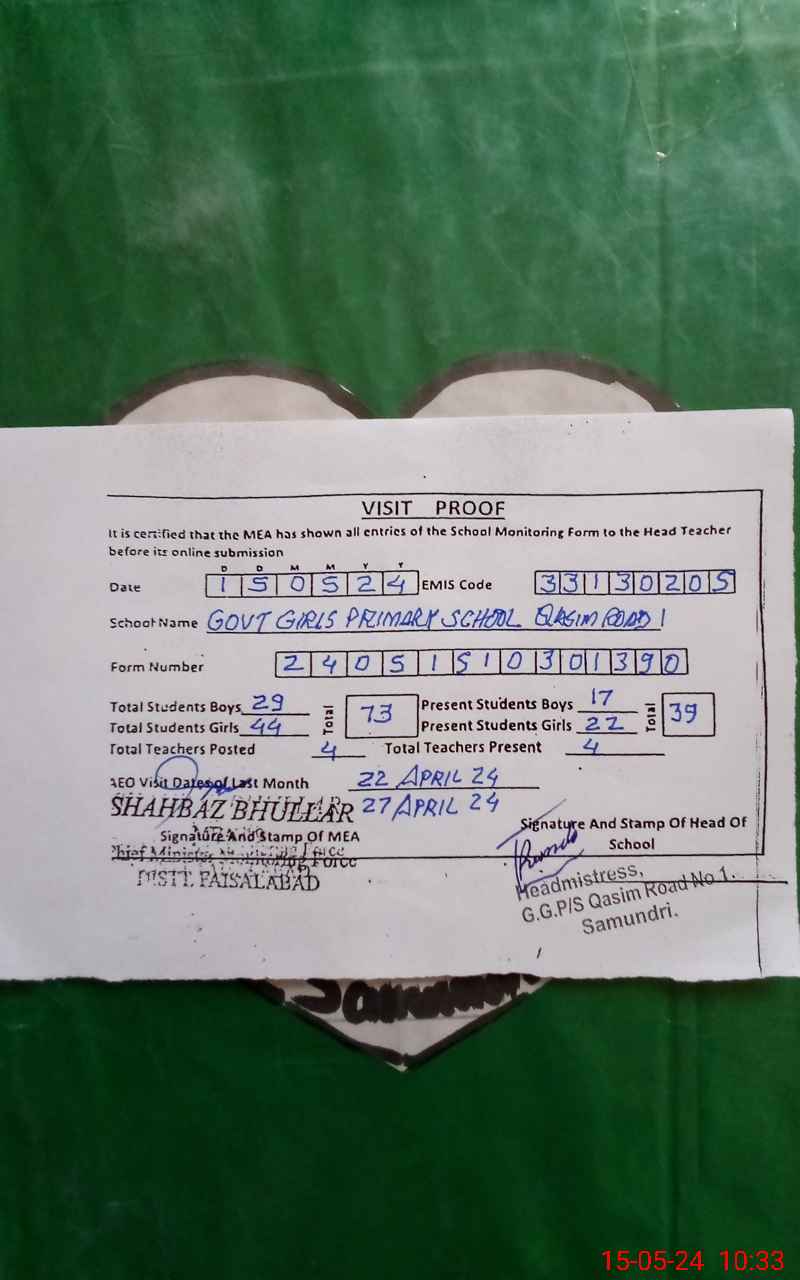 VISIT PROOF
It is certified that the MEA has shown all entries of the School Monitoring Form to the Head Teacher
before its online submission
D D M M Y Y
Date 1 5 0 5 2 4 EMIS Code 3 3 1 3 0 2 0 5
School Name GOVT GIRLS PRIMARY SCHOOL QASIM ROAD 1
Form Number 2 4 0 5 1 5 1 0 3 0 1 3 9 0
Total Students Boys 29 Total 73 Present Students Boys 17 Total 39
Total Students Girls 44 Present Students Girls 22
Total Teachers Posted 4 Total Teachers Present 4
AEO Visit Dates of Last Month 22 APRIL 24
SHAHBAZ BHULLAR 27 APRIL 24
Signature And Stamp Of MEA Signature And Stamp Of Head Of
School
Chief Minister Monitoring Force
DISTT. FAISALABAD
Headmistress,
G.G.P/S Qasim Road No 1.
Samundri.
15-05-24 10:33